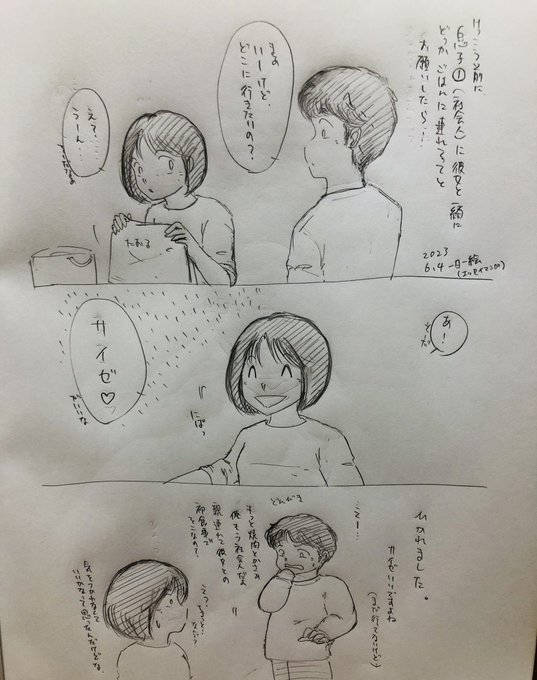 けっこう前に、
息子①(社会人)に彼女と一緒に
どっかごはんに連れてってと
お願いしたら…!
2023
6.4 一日一絵
(エッセイマンガ)
まぁ
いーけど、
どこに行きたいの?
えっ…
うーん…
たおる
あ!
そだ
サイゼ♡
がいいな
にぱっ
ひかれました。
サイゼいいですよね
(まだ行てないけど)
えー…
どんびき
もっと焼肉とかさぁ
俺もう社会人だよ
親連れて彼女との
初食事で
そこなの?
えっちょっと…
なんで?
気をつかわなくて
いいかなって思ったんだけどな